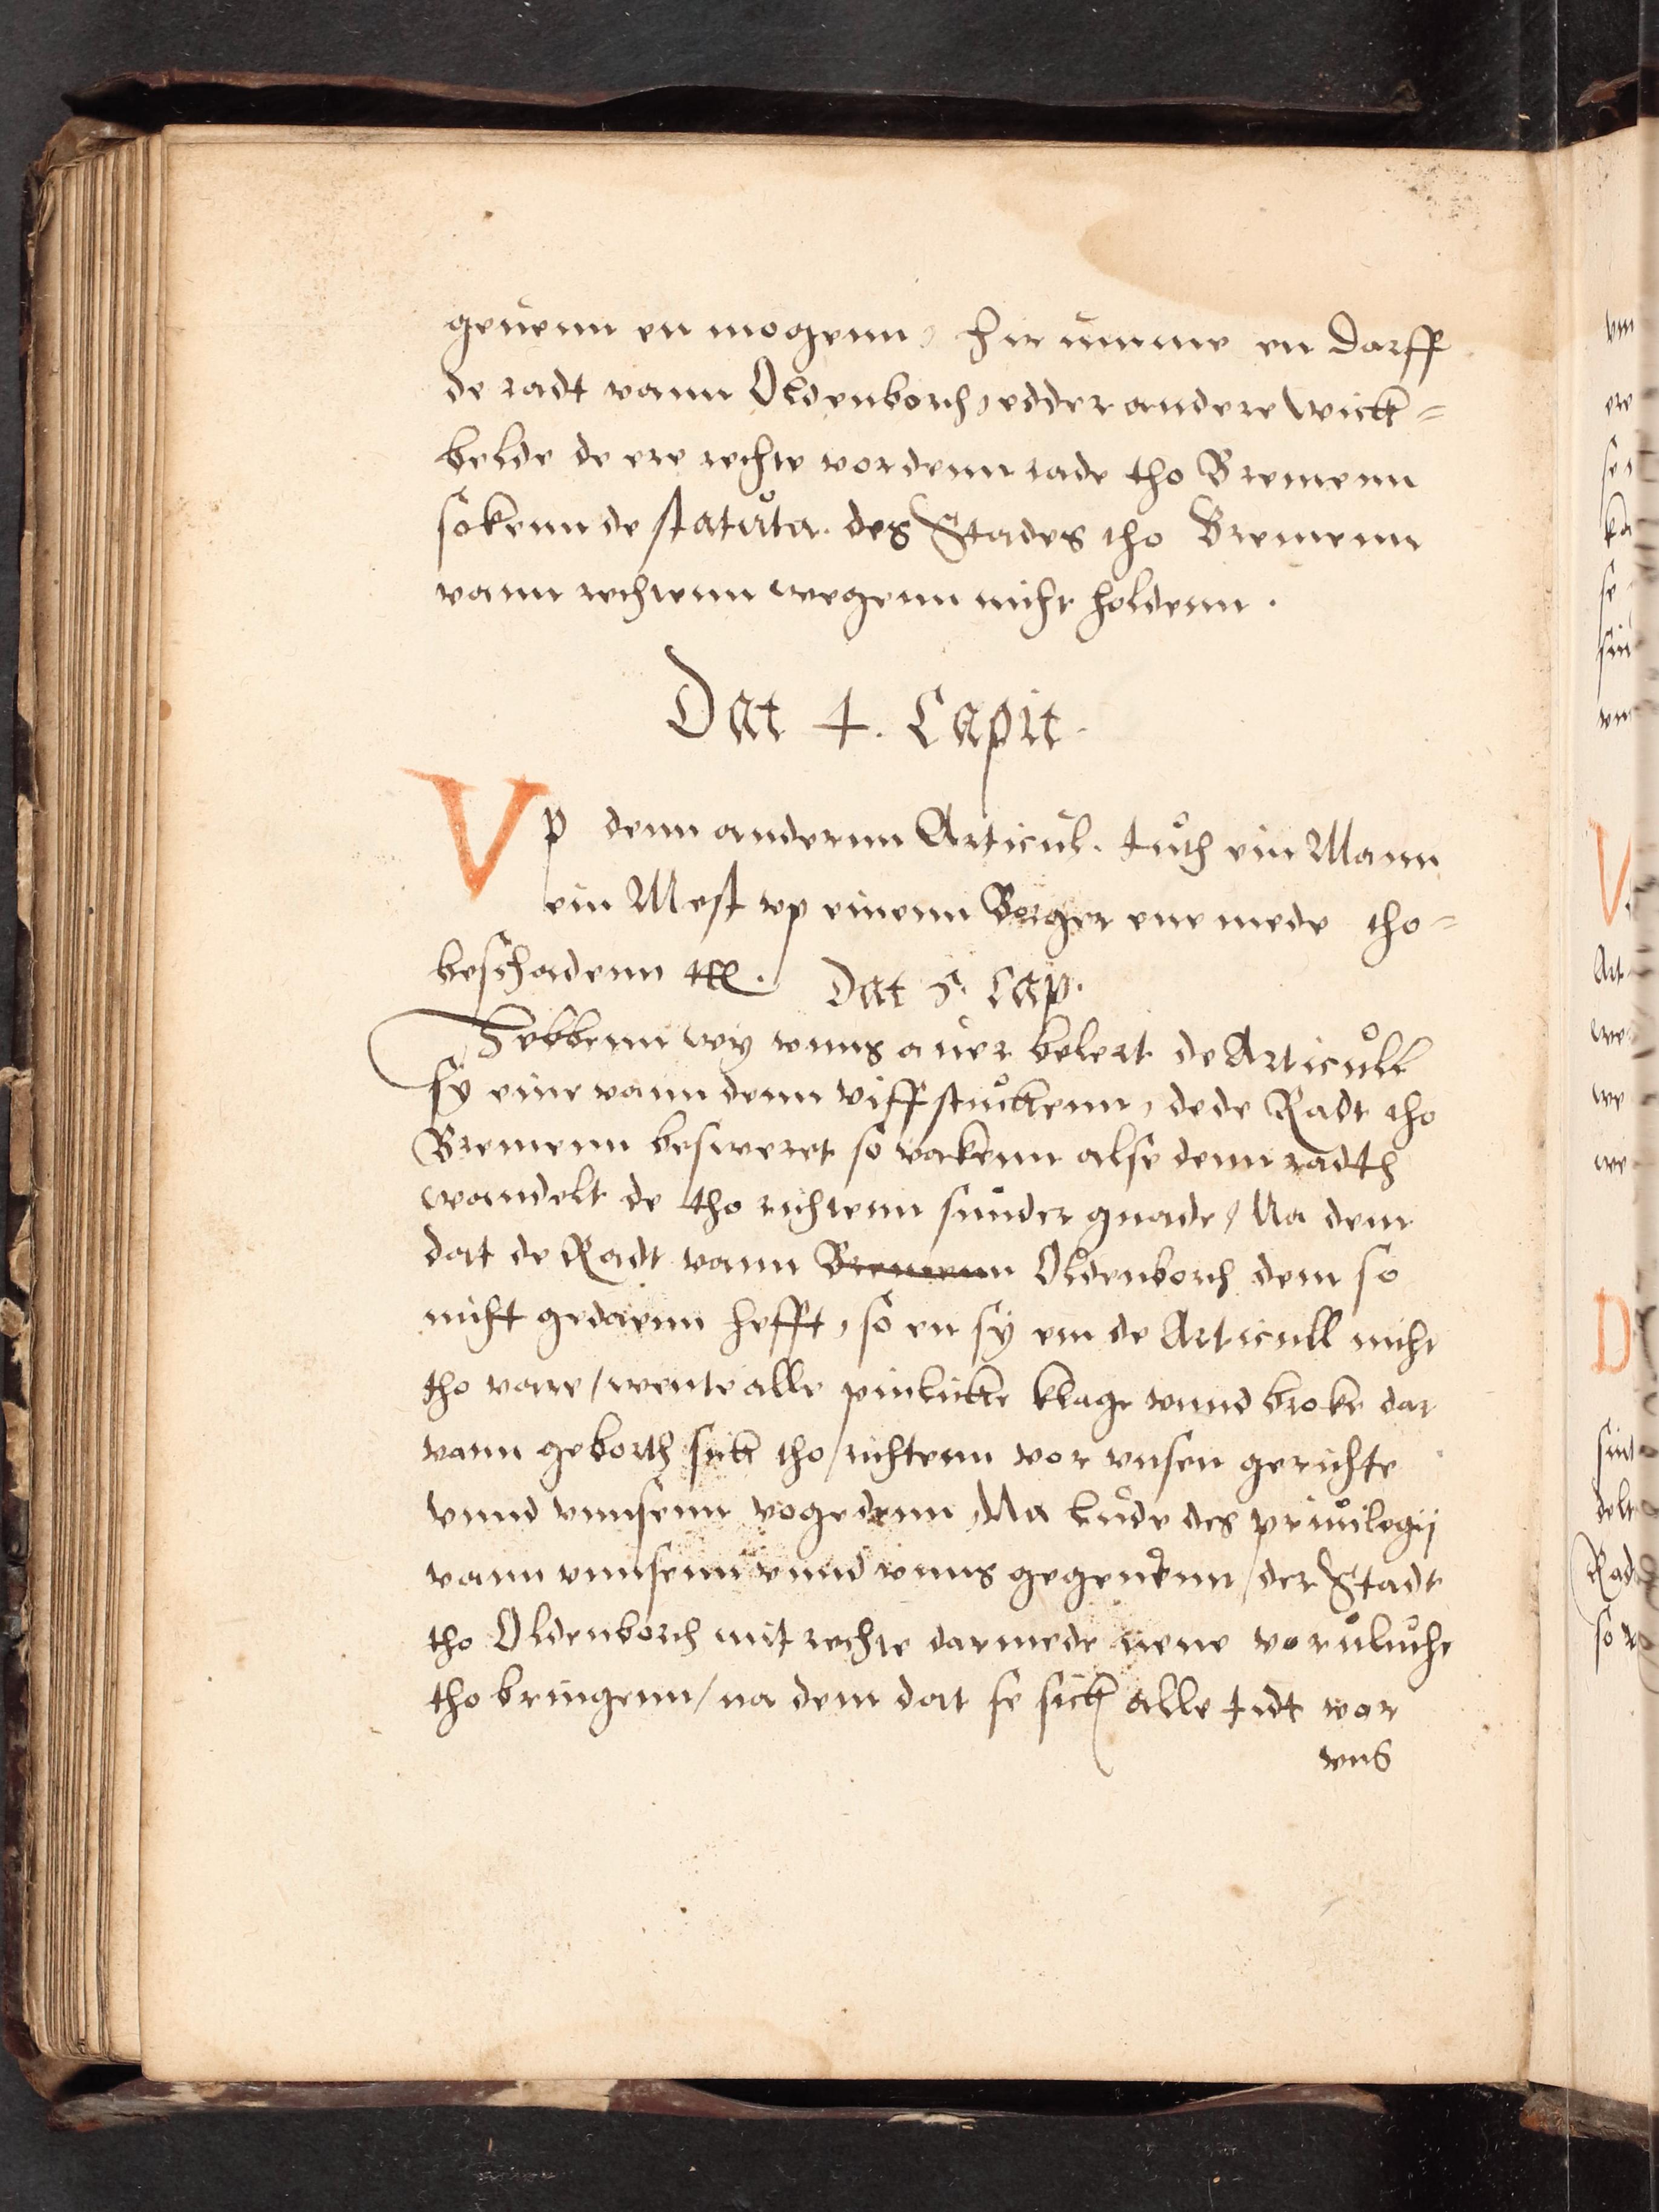 geuenn en mogenn, hir umme en darff
de radt vann Oldenborch, edder andere wick=
belde de ere rechte vor denn rade tho Bremenn
sokenn de statuta. des Stades tho Bremenn
vann rechtenn wegenn nicht holdenn.
Dat 4. Capit.
Vp denn andernn Articul. tuth ein Mann
ein Mest vp einenn Borger ene mede tho=
beschadenn
Dat 5. Cap.
Hebbenn wy vnns auer belert de Articull
sy eine vann denn viff stuckenn, de de Radt tho
Bremenn besweret so vakenn alse denn radth
wandelt de tho richtenn sunder gnade / Na dem
dat de Radt vann Bremenn Oldenborch dem so
nicht gedaenn hefft, so en sy em de Articull nicht
tho vare / wente alle pinlicke klage vnnd broke dar
vann geborth sick tho richtenn vor vnsen gerichte
vnnd vnnsenn vogedenn, Na lude des priuilegij
vann vnnsenn vnnd vnns gegeuenn / der Stadt
tho Oldenborch mit rechte darmede nene
tho bringenn / na dem dat se sick alle tidt vor
vns
vm
ere
se
se
vn
V
Art
we
we
we
D
sint
delt
Rad
so